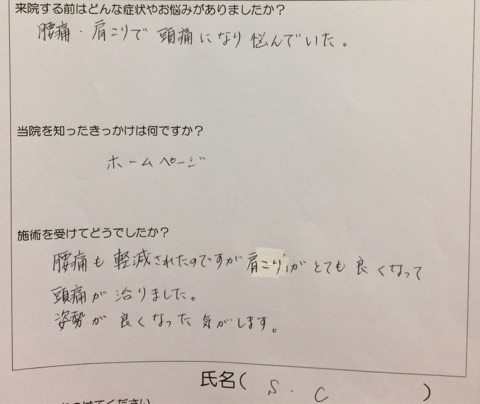 来院する前はどんな症状やお悩みがありましたか？
腰痛・肩こりで頭痛になり悩んでいた。
当院を知ったきっかけは何ですか？
ホームページ
施術を受けてどうでしたか？
腰痛も軽減されたのですが肩こりがとても良くなって
頭痛が治りました。
姿勢が良くなった気がします。
氏名( S. C )